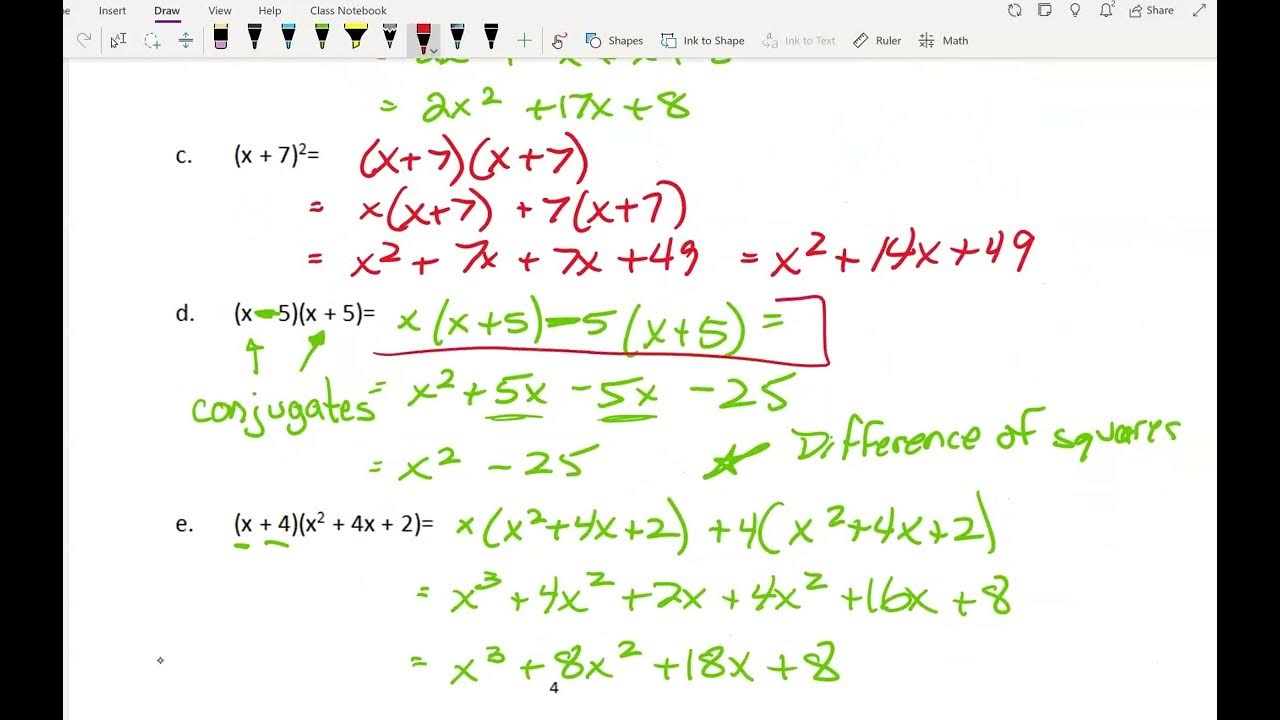 Insert Draw View Help Class Notebook Share
Shapes Ink to Shape Ink to Text Ruler Math
= 2x² +17x+8
c. (x + 7)²= (x+7)(x+7)
= x(x+7) +7(x+7)
= x² + 7x + 7x +49 = x² + 14x+49
d. (x - 5)(x + 5)= x(x+5)-5(x+5) =
conjugates = x² + 5x - 5x - 25
= x² - 25 Difference of squares
e. (x + 4)(x² + 4x + 2)= x(x²+4x+2) +4(x²+4x+2)
= x³ +4x² +2x +4x² +16x +8
= x³ +8x² +18x +8
4